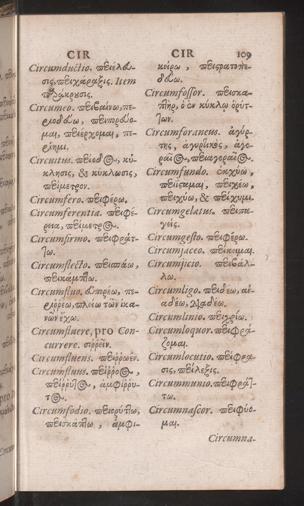 CIR
Circumductio. περιέλευ-
σις, περιχάραξις. Item
Circumeo. περιβαίνω, πε-
ριοδεύω, περιπορεύο-
μαι, περιέρχομαι, πε-
ρίειμι.
Circuitus. περίοδος, κύ-
κλησις, & κύκλωσις,
περίμετρον.
Circumfero. περιφέρω.
Circumferentia. περιφέ-
ρεια, περίμετρος.
Circumfirmo. περιφράτ-
τω.
Circumflecto. περισπάω,
περικάμπτω.
Circumfluo,
Circumfluere, pro Con-
currere. συῤῥεῖν.
Circumfluens. περιῤῥέων.
Circumfluus. περίῤῥοος,
περίῤῥυτος, ἀμφίρρυ-
τος.
Circumfodio. περιορύττω,
περισκάπτω, ἀμφι-
CIR 109
κείρω, περιστρατοπε-
δεύω.
Circumfossor. περισκα-
πτὴρ, ὁ ἐν κύκλῳ ὀρύτ-
των.
Circumforaneus. ἀγύρ-
της, ἀγυρτικὸς, ἀγο-
ραῖος, περιαγοραῖος.
Circumfundo. ἐκχύω,
περιίσταμαι, περιχέω,
περιχύω, & περίχυμι.
Circumgelatus. περιπα-
γείς.
Circumgesto. περιφέρω.
Circumjaceo. περίκειμαι.
Circumjicio. περιβάλ-
λω.
Circumligo. περιδέω,
Circumlinio. περιχρίω.
Circumloquor. περιφρά-
ζομαι.
Circumlocutio. περίφρα-
σις, περίλεξις.
Circummunio. περιφράτ-
τω.
Circumnascor. περιφύο-
μαι.
Circumna-